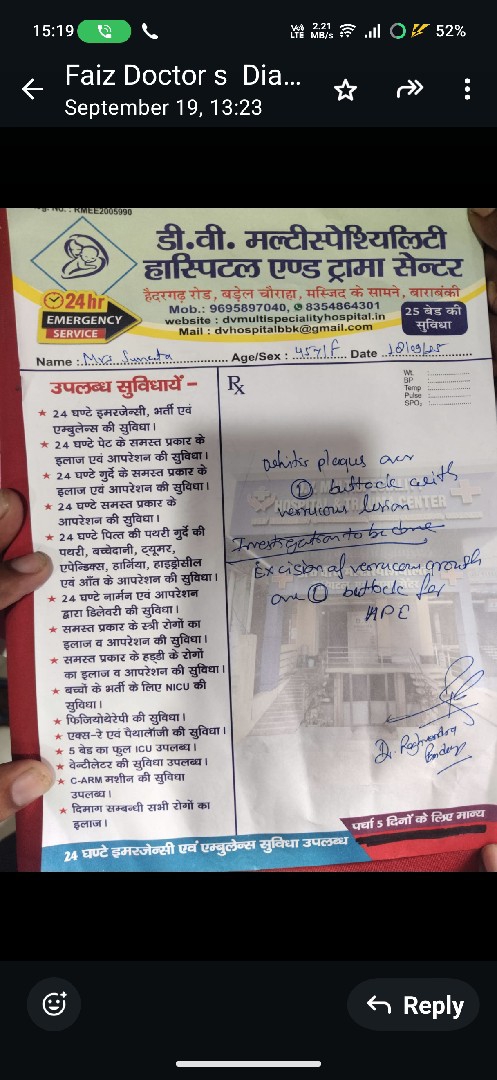 15:19
Vo) LTE 2.21 MB/s 52%
Faiz Doctor s Dia...
September 19, 13:23
. No. : RMEE2005990
डी.वी. मल्टीस्पेश्यिलिटी
हास्पिटल एण्ड ट्रामा सेन्टर
24hr
EMERGENCY
SERVICE
हैदरगढ़ रोड, बड़ेल चौराहा, मस्जिद के सामने, बाराबंकी
Mob.: 9695897040, 8354864301
website : dvmultispecialityhospital.in
Mail : dvhospitalbbk@gmail.com
25 बेड की
सुविधा
Name : Mrs Age/Sex : 45Y/F Date
उपलब्ध सुविधायें –
24 घण्टे इमरजेन्सी, भर्ती एवं
एम्बुलेन्स की सुविधा।
24 घण्टे पेट के समस्त प्रकार के
इलाज एवं आपरेशन की सुविधा।
24 घण्टे गुर्दे के समस्त प्रकार के
इलाज एवं आपरेशन की सुविधा।
24 घण्टे समस्त प्रकार के
आपरेशन की सुविधा।
24 घण्टे पित्त की पथरी गुर्दे की
पथरी, बच्चेदानी, ट्यूमर,
एपेन्डिक्स, हार्निया, हाइड्रोसील
एवं आँत के आपरेशन की सुविधा।
24 घण्टे नार्मन एवं आपरेशन
द्वारा डिलेवरी की सुविधा।
समस्त प्रकार के स्त्री रोगों का
इलाज व आपरेशन की सुविधा।
समस्त प्रकार के हड्डी के रोगों
का इलाज व आपरेशन की सुविधा।
बच्चों के भर्ती के लिए NICU की
सुविधा।
फिजियोथेरेपी की सुविधा।
एक्स-रे एवं पैथालॉजी की सुविधा।
5 बेड का फुल ICU उपलब्ध।
वेन्टीलेटर की सुविधा उपलब्ध।
C-ARM मशीन की सुविधा
उपलब्ध।
दिमाग सम्बन्धी सभी रोगों का
इलाज।
Rx
Wt.
BP
Temp
Pulse
SPO2
plaques over
buttock with
lesion
Investigation to be done
Excision of growth
buttock for
HPE
Dr. Raghvendra
Pandey
पर्चा 5 दिनों के लिए मान्य
24 घण्टे इमरजेन्सी एवं एम्बुलेन्स सुविधा उपलब्ध
Reply